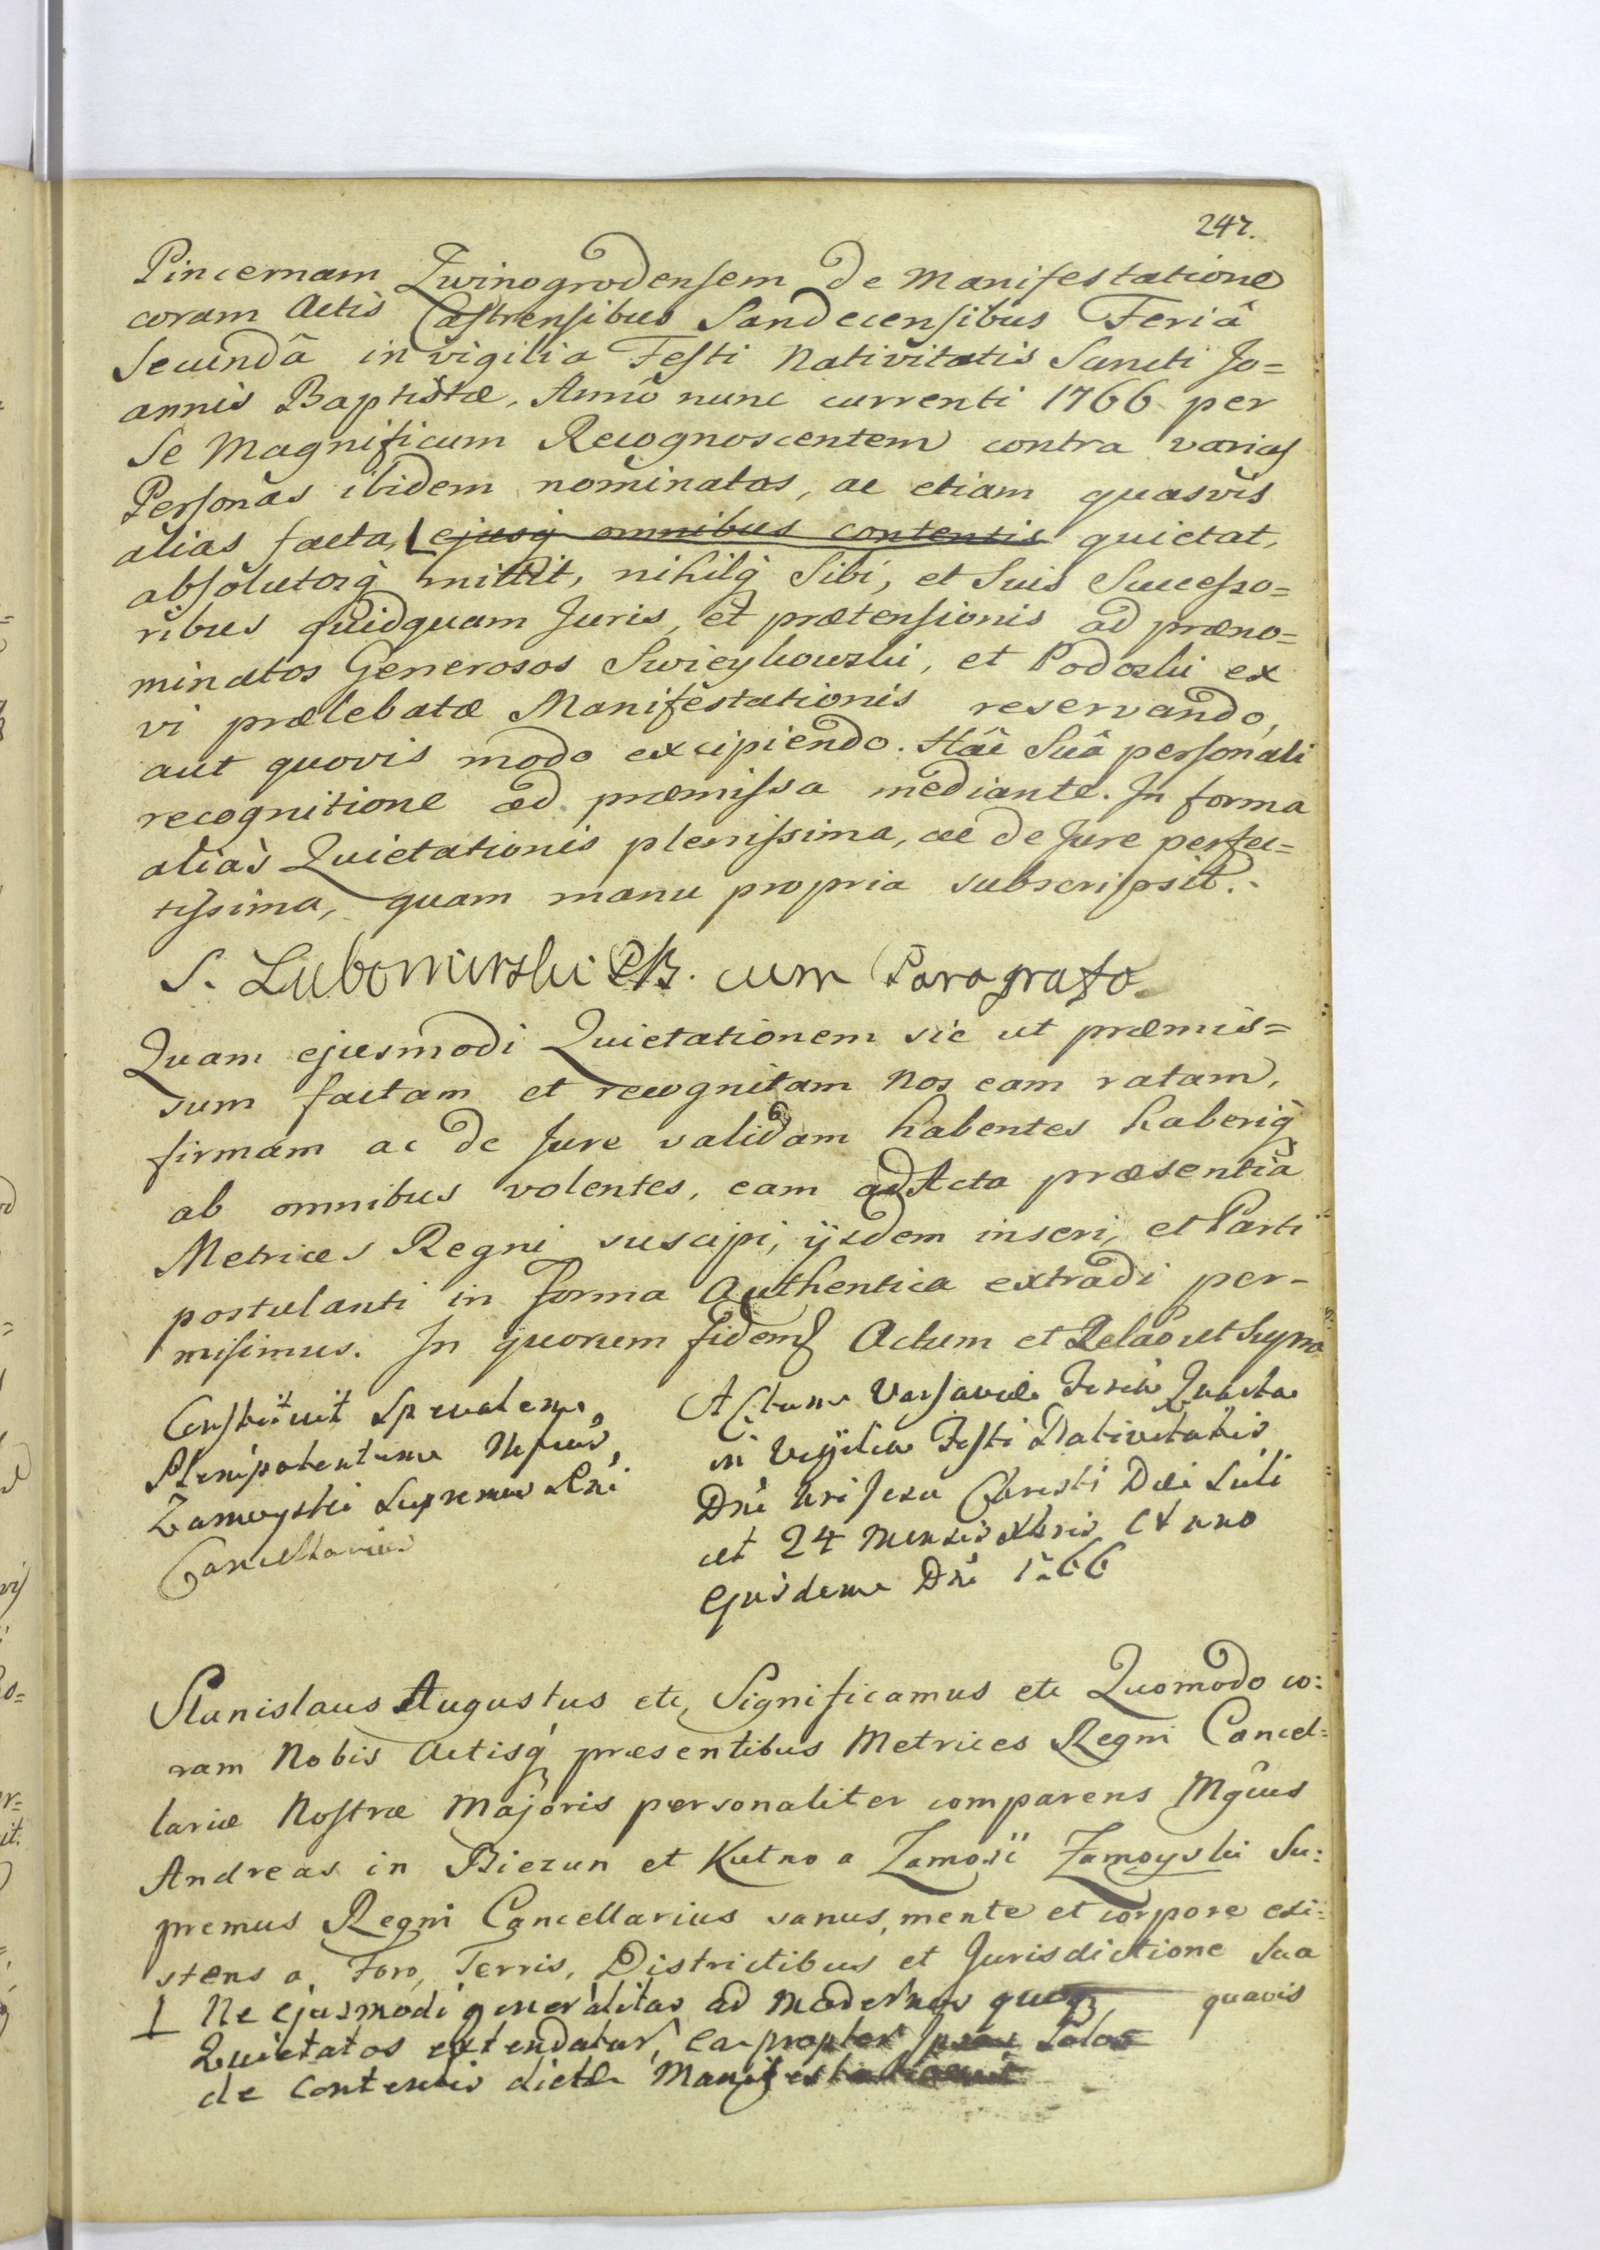 247.
Pincernam Zwinogrodensem de Manifestatione
coram Actis Castrensibus Sandecensibus Feriâ
Secundâ in vigilia Festi Nativitatis Sancti Jo=
annis Baptistæ, Annô nunc currenti 1766 per
Se Magnificum Recognoscentem contra varias
Personas ibidem nominatas, ac etiam quasvis
alias facta, ejusq̀ omnibus contentis quietat,
absolutosq̀ mittit, nihilq̀ Sibi, et Suis Successo=
ribus quidquam Juris, et prætensionis ad præno=
minatos Generosos Swieykowski, et Podoski ex
vi prælebatæ Manifestationis reservando,
aut quovis modo excipiendo. Hâc Suâ personali
recognitione ad præmissa mediante. In forma
aliàs Quietationis plenissima, ac de Jure perfec=
tissima, quam manu propria subscripsit.
S. Lubomirski PB. cum Paragrafo
Quam ejusmodi Quietationem sic ut præmis=
sum factam et recognitam Nos eam ratam,
firmam ac de Jure validam habentes haberiq̀
ab omnibus volentes, eam ad Acta præsentia
Metrices Regni suscipi, ijsdem inseri, et Parti
postulanti in forma Authentica extradi per-
misimus. In quorum fidem Actum et Relaõ ut supra
Constituit Spualem
Plenipotentem
Zamoyski Supremus Rni
Cancellarius
Actum Varsaviæ Feria Quarta
in Vigilia Festi Nativitatis
Dni nri Jesu Christi Die Scili
cet 24 Mensis Xbris Anno
Ejusdem Dni 1766
Stanislaus Augustus etc, Significamus etc Quomodo co:
ram Nobis Actisq̀ præsentibus Metrices Regni Cancel=
lariæ Nostræ Majoris personaliter comparens Mgcus
Andreas in Biezun et Kutno a Zamość Zamoyski Su:
premus Regni Cancellarius sanus mente et corpore exi:
stens a Foro, Terris, Districtibus et Jurisdictione Sua
quavis
Ne ejusmodi generalitas ad modernos quoq
Quietatos extendatur, ea propter Ipsos Solos
de Contentis dictæ